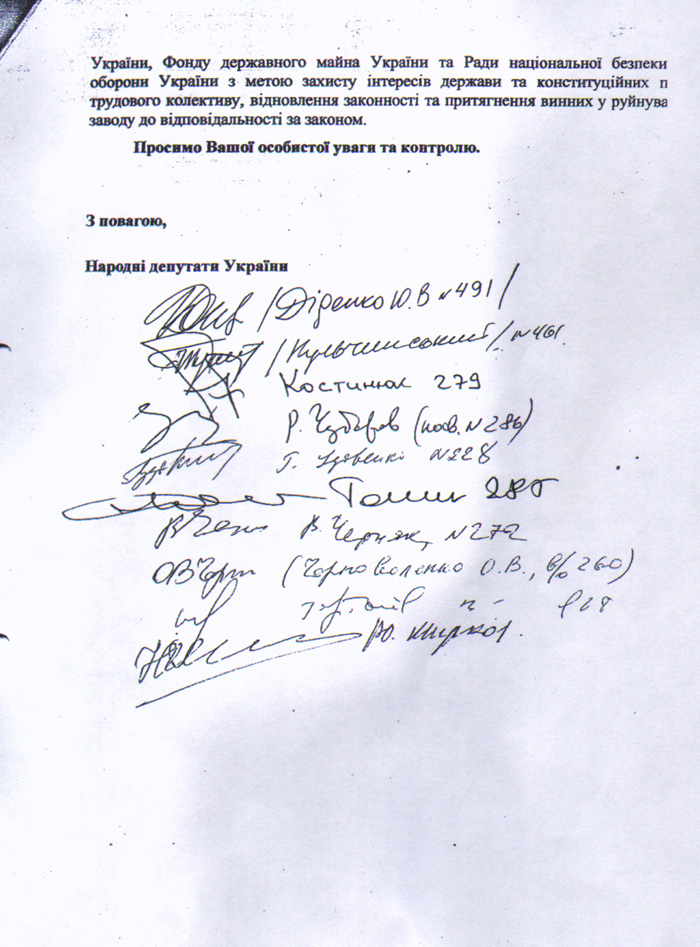 України, Фонду державного майна України та Ради національної безпеки
оборони України з метою захисту інтересів держави та конституційних п
трудового колективу, відновлення законності та притягнення винних у руйнува
заводу до відповідальності за законом.
Просимо Вашої особистої уваги та контролю.
З повагою,
Народні депутати України
/ Діденко Ю.В №491 /
/ Кульчинський / №461.
Костинюк 279
Р. Чубаров (посв. №286)
Г. Удовенко №228
280
В. Черняк, №272
(Чорноволенко О.В., 260)
Ю.